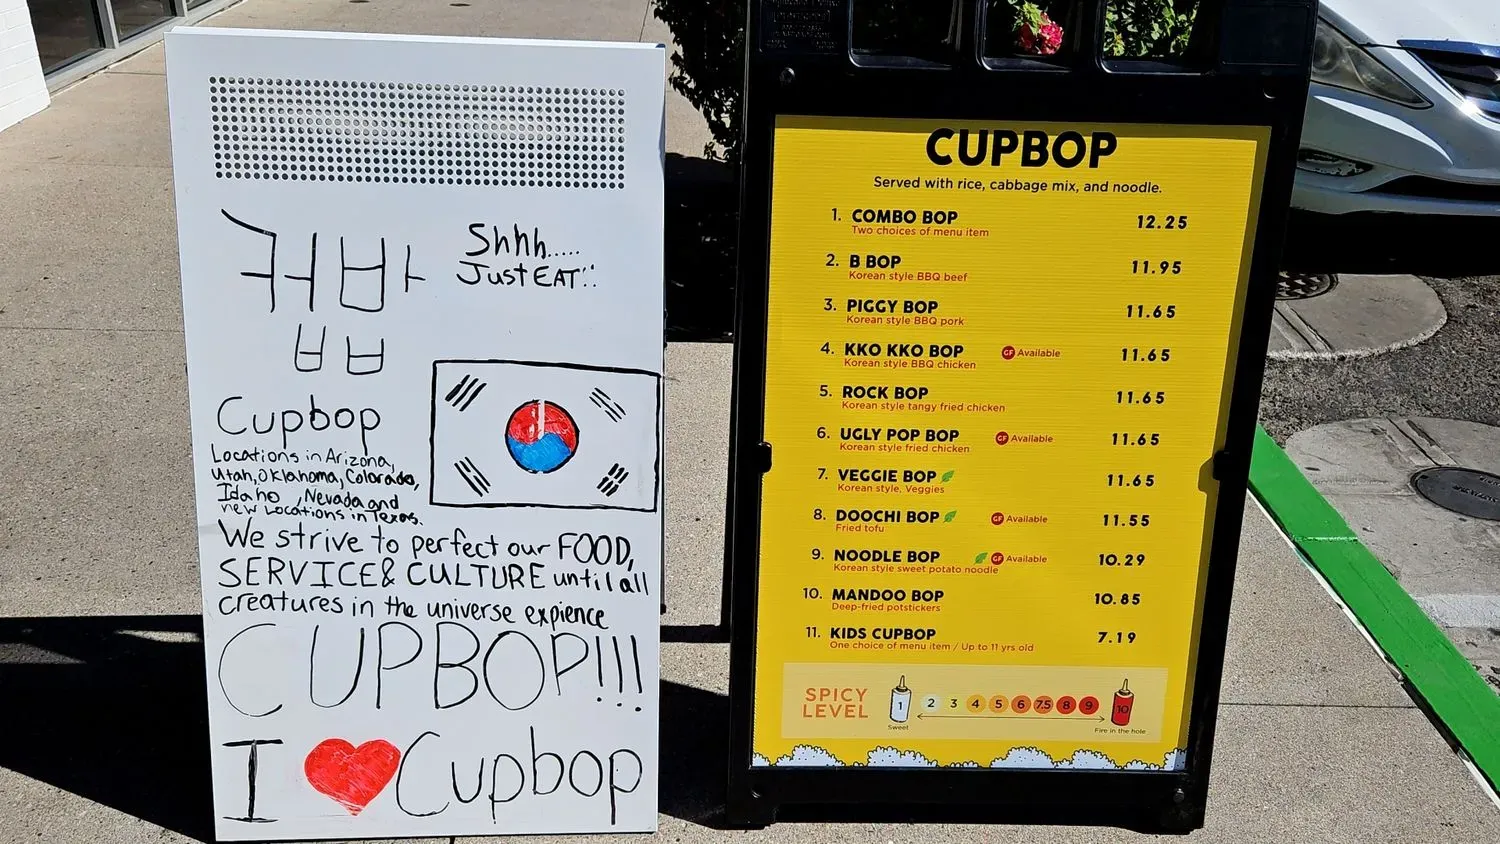 컵밥
Shhh.....
Just EAT!!
Cupbop
Locations in Arizona,
Utah, Oklahoma, Colorado,
Idaho, Nevada and
new Locations in Texas.
We strive to perfect our FOOD,
SERVICE & CULTURE until all
creatures in the universe expience
CUPBOP!!!
I ❤ Cupbop
CUPBOP
Served with rice, cabbage mix, and noodle.
1. COMBO BOP 12.25
Two choices of menu item
2. B BOP 11.95
Korean style BBQ beef
3. PIGGY BOP 11.65
Korean style BBQ pork
4. KKO KKO BOP GF Available 11.65
Korean style BBQ chicken
5. ROCK BOP 11.65
Korean style tangy fried chicken
6. UGLY POP BOP GF Available 11.65
Korean style fried chicken
7. VEGGIE BOP 11.65
Korean style, Veggies
8. DOOCHI BOP GF Available 11.55
Fried tofu
9. NOODLE BOP GF Available 10.29
Korean style sweet potato noodle
10. MANDOO BOP 10.85
Deep-fried potstickers
11. KIDS CUPBOP 7.19
One choice of menu item / Up to 11 yrs old
SPICY
LEVEL
1 2 3 4 5 6 7.5 8 9 10
Sweet
Fire in the hole